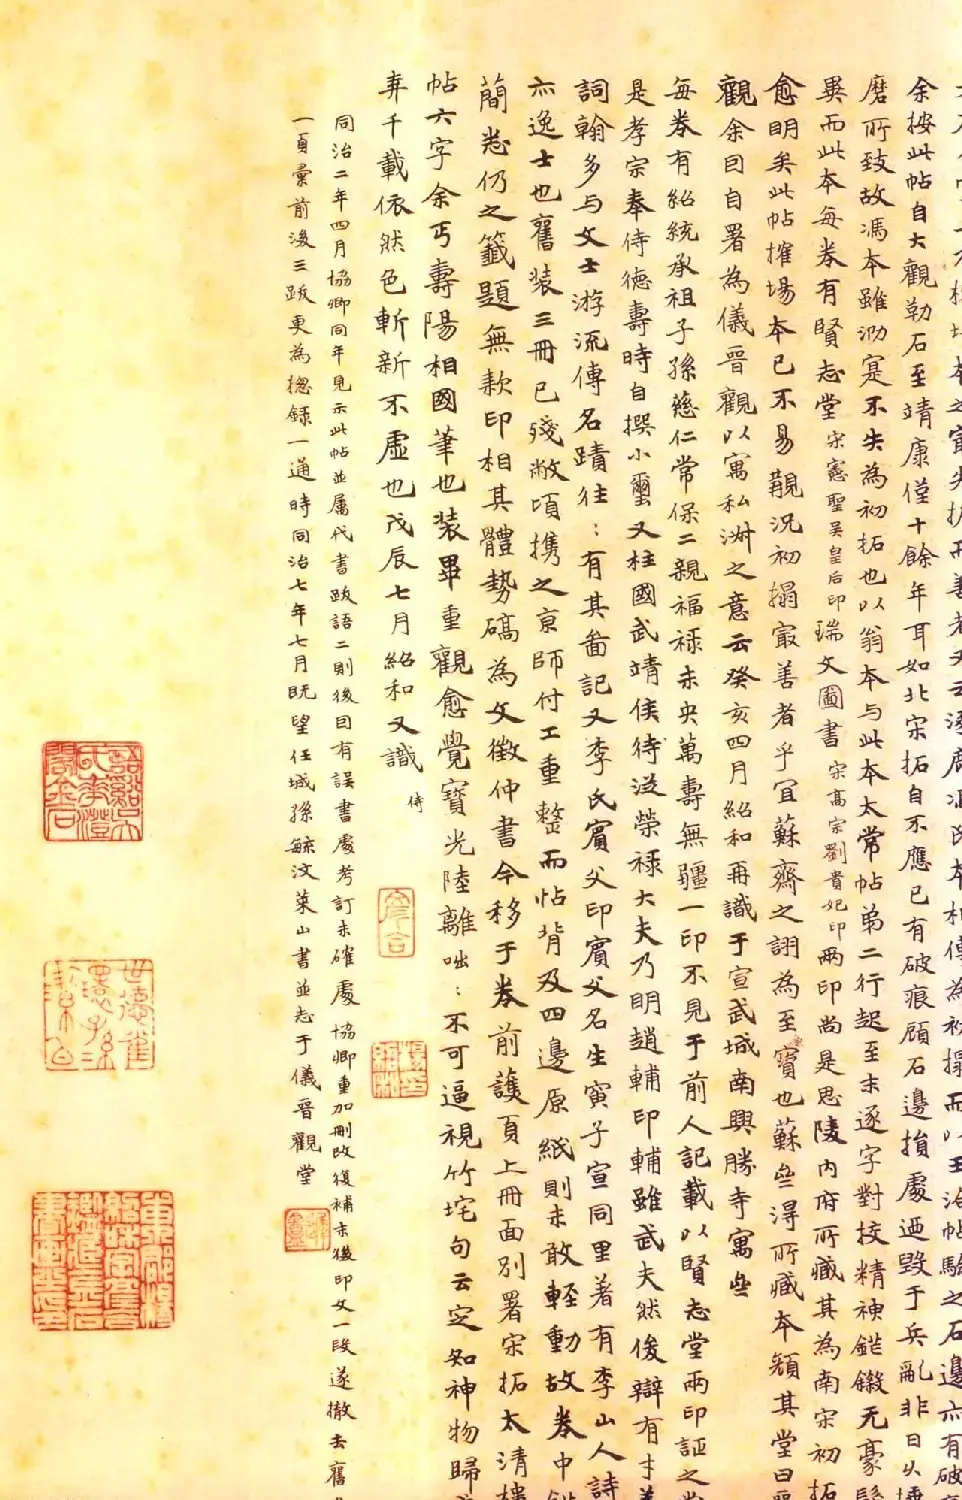 余按此帖自大觀勒石至靖康僅十餘年耳如北宋拓自不應已有破痕顧石邊損處迺毀于兵亂非日久
磨所致故馮本雖泐寔不失為初拓也以翁本與此本太常帖弟二行起至末逐字對挍精神鋩鎩无豪
異而此本每券有賢志堂宋憲聖吳皇后印瑞文圖書宋高宗劉貴妃印兩印尚是思陵內府所藏其為南宋初拓
愈明矣此帖搉場本已不易覯況初搨寂善者乎宜蘇齋之詡為至寶也蘇坐淂所藏本額其堂曰
觀余因自署為儀晋觀以寓私淑之意云癸亥四月紹和再識于宣武城南興勝寺寓坐
每券有紹統承祖子孫慈仁常保二親福祿未央萬壽無疆一印不見于前人記載以賢志堂兩印証之
是孝宗奉侍德壽時自撰小璽又柱國武靖侯待溢榮祿大夫乃明趙輔印輔雖武夫然俊辯有才
詞翰多与文士游流傳名蹟往：有其啚記又李氏賓父印賓父名生寅子宣同里著有李山人詩
亦逸士也舊装三冊已殘敝頃携之京師付工重整而帖背及四邊原紙則未敢輕動故券中
蕳悉仍之籤題無欵印相其體勢碻為文徵仲書今移于券前護頁上冊面別署宋拓太清樓
帖六字余丐壽陽相國筆也装畢重觀愈覺寶光陸離咄：不可逼視竹垞句云定知神物歸
弆千載依然色斬新不虛也戊辰七月紹和又識
侍
同治二年四月協卿同年見示此帖並屬代書跋語二則後因有誤書處考訂未確處協卿重加刪改復補末後印文一段遂撤去舊
一頁彙前後三跋更為捴錄一通時同治七年七月既望任城孫毓汶萊山書並志于儀晋觀堂
彥合